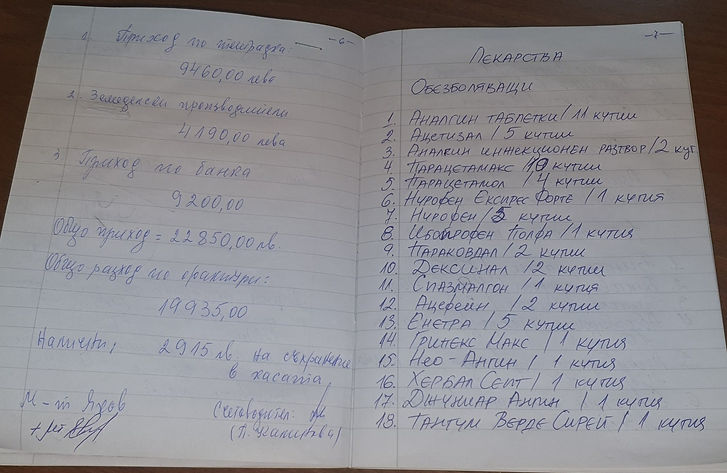 -6-
1. Приход по тетрадка:
9460,00 лева
2. Земеделски производители
4190,00 лева
3 Приход по банка
9200,00
Общо приход = 22850,00 лв.
Общо разход по фактури:
19935,00
Налични, 2915 лв. на съхранение
в касата,
М-т Яров
Счетоводител:
-7-
ЛЕКАРСТВА
ОБЕЗБОЛЯВАЩИ
1. АНАЛГИН ТАБЛЕТКИ / 11 КУТИИ
2. АЦЕТИЗАЛ / 5 КУТИИ
3. АНАЛГИН ИНЖЕКЦИОНЕН РАЗТВОР / 2 КУТ
4. ПАРАЦЕТАМАКС / 10 КУТИИ
5. ПАРАЦЕТАМОЛ / 4 КУТИИ
6. НУРОФЕН ЕКСПРЕС ФОРТЕ / 1 КУТИЯ
7. НУРОФЕН / 5 КУТИИ
8. ИБОПРОФЕН ПОЛФА / 1 КУТИЯ
9. ПАРАКОВДАЛ / 2 КУТИИ
10. ДЕКСИНАЛ / 2 КУТИИ
11. СПАЗМАЛГОН / 1 КУТИЯ
12. АЦЕФЕИН / 2 КУТИИ
13. ЕНЕТРА / 5 КУТИИ
14. ГРИНЕКС МАКС / 1 КУТИЯ
15. НЕО-АНГИН / 1 КУТИЯ
16. ХЕРБАЛ СЕПТ / 1 КУТИЯ
17. ДЖУНИАР АНГИН / 1 КУТИЯ
18. ТАНТУМ ВЕРДЕ СПРЕЙ / 1 КУТИЯ